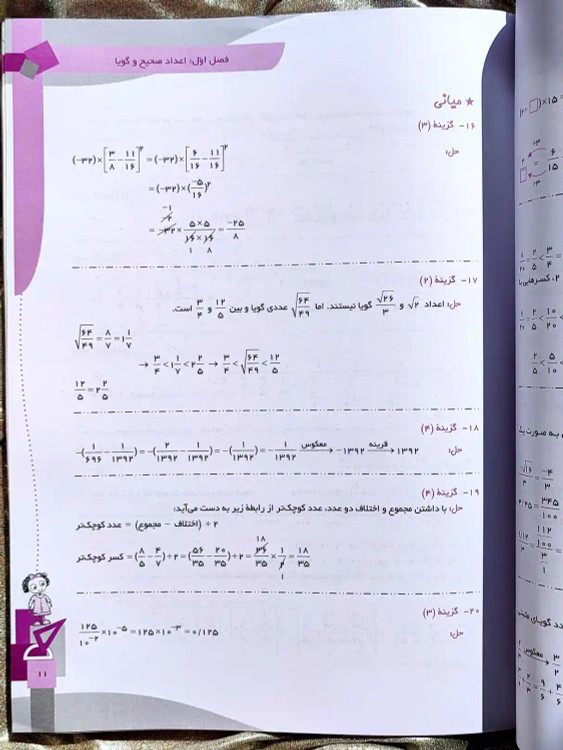 فصل اول: اعداد صحیح و گویا
★ میانی
۱۶- گزینهٔ (۳)
حل:
(-۳۲)×[۳/۸ - ۱۱/۱۶]^۲ = (-۳۲)×[۶/۱۶ - ۱۱/۱۶]^۲
= (-۳۲)×(-۵/۱۶)^۲
= -۳۲ × (۵×۵)/(۱۶×۱۶) = -۲۵/۸
۱۷- گزینهٔ (۲)
حل: اعداد √۲ و √۲۶/۳ گویا نیستند. اما √(۶۴/۴۹) عددی گویا و بین ۱۲/۵ و ۳/۴ است.
√(۶۴/۴۹) = ۸/۷ = ۱ ۱/۷
→ ۳/۴ < ۱ ۱/۷ < ۲ ۲/۵ → ۳/۴ < √(۶۴/۴۹) < ۱۲/۵
۱۲/۵ = ۲ ۲/۵
۱۸- گزینهٔ (۴)
حل:
-(۱/۶۹۶ - ۱/۱۳۹۲) = -(۲/۱۳۹۲ - ۱/۱۳۹۲) = -(۱/۱۳۹۲) = -۱/۱۳۹۲ معکوس → -۱۳۹۲ قرینه → ۱۳۹۲
۱۹- گزینهٔ (۴)
حل: با داشتن مجموع و اختلاف دو عدد، عدد کوچک‌تر از رابطهٔ زیر به دست می‌آید:
۲ ÷ (اختلاف - مجموع) = عدد کوچک‌تر
کسر کوچک‌تر = (۸/۵ - ۴/۷)÷۲ = (۵۶/۳۵ - ۲۰/۳۵)÷۲ = ۳۶/۳۵ × ۱/۲ = ۱۸/۳۵
۲۰- گزینهٔ (۳)
حل:
۱۲۵/۱۰^-۲ × ۱۰^-۵ = ۱۲۵×۱۰^-۳ = ۰/۱۲۵
۱۱